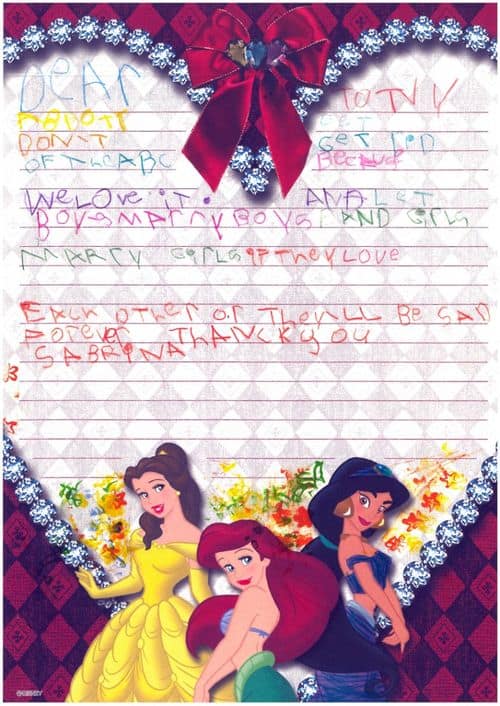 DeAr TO TNY
ABDOTT
DON'T GET rID
OF THe ABC BecAuse
We LOve iT. ANd LeT
BOYS MArrY BOYS AND GIrLS
MArrY GIrLS IF THeY LOVE
EACH OTHer Or THeY'LL Be SAD
FOreVer THANCK YOU
SABRINA
©DISNEY